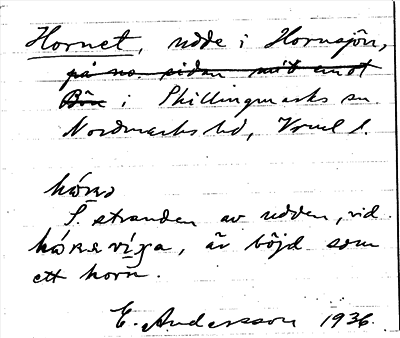 Hornet, udde i Hornsjön,
på no. sidan mitt emot
Bön i Skillingmarks sn.
Nordmarks hd, Vrml l.
hó̷ɳə
S. stranden av udden, vid
hó̷ɳavíɡa, är böjd som
ett horn.
E. Andersson 1936.